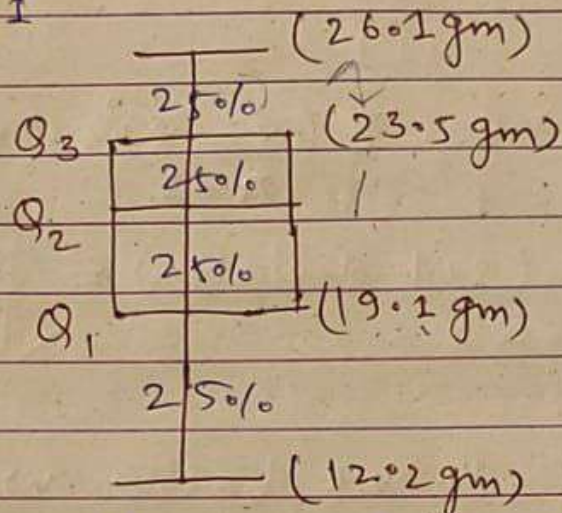 I
(26.1 gm)
25%
Q3 (23.5 gm)
25%
Q2
25%
Q1 (19.1 gm)
25%
(12.2 gm)